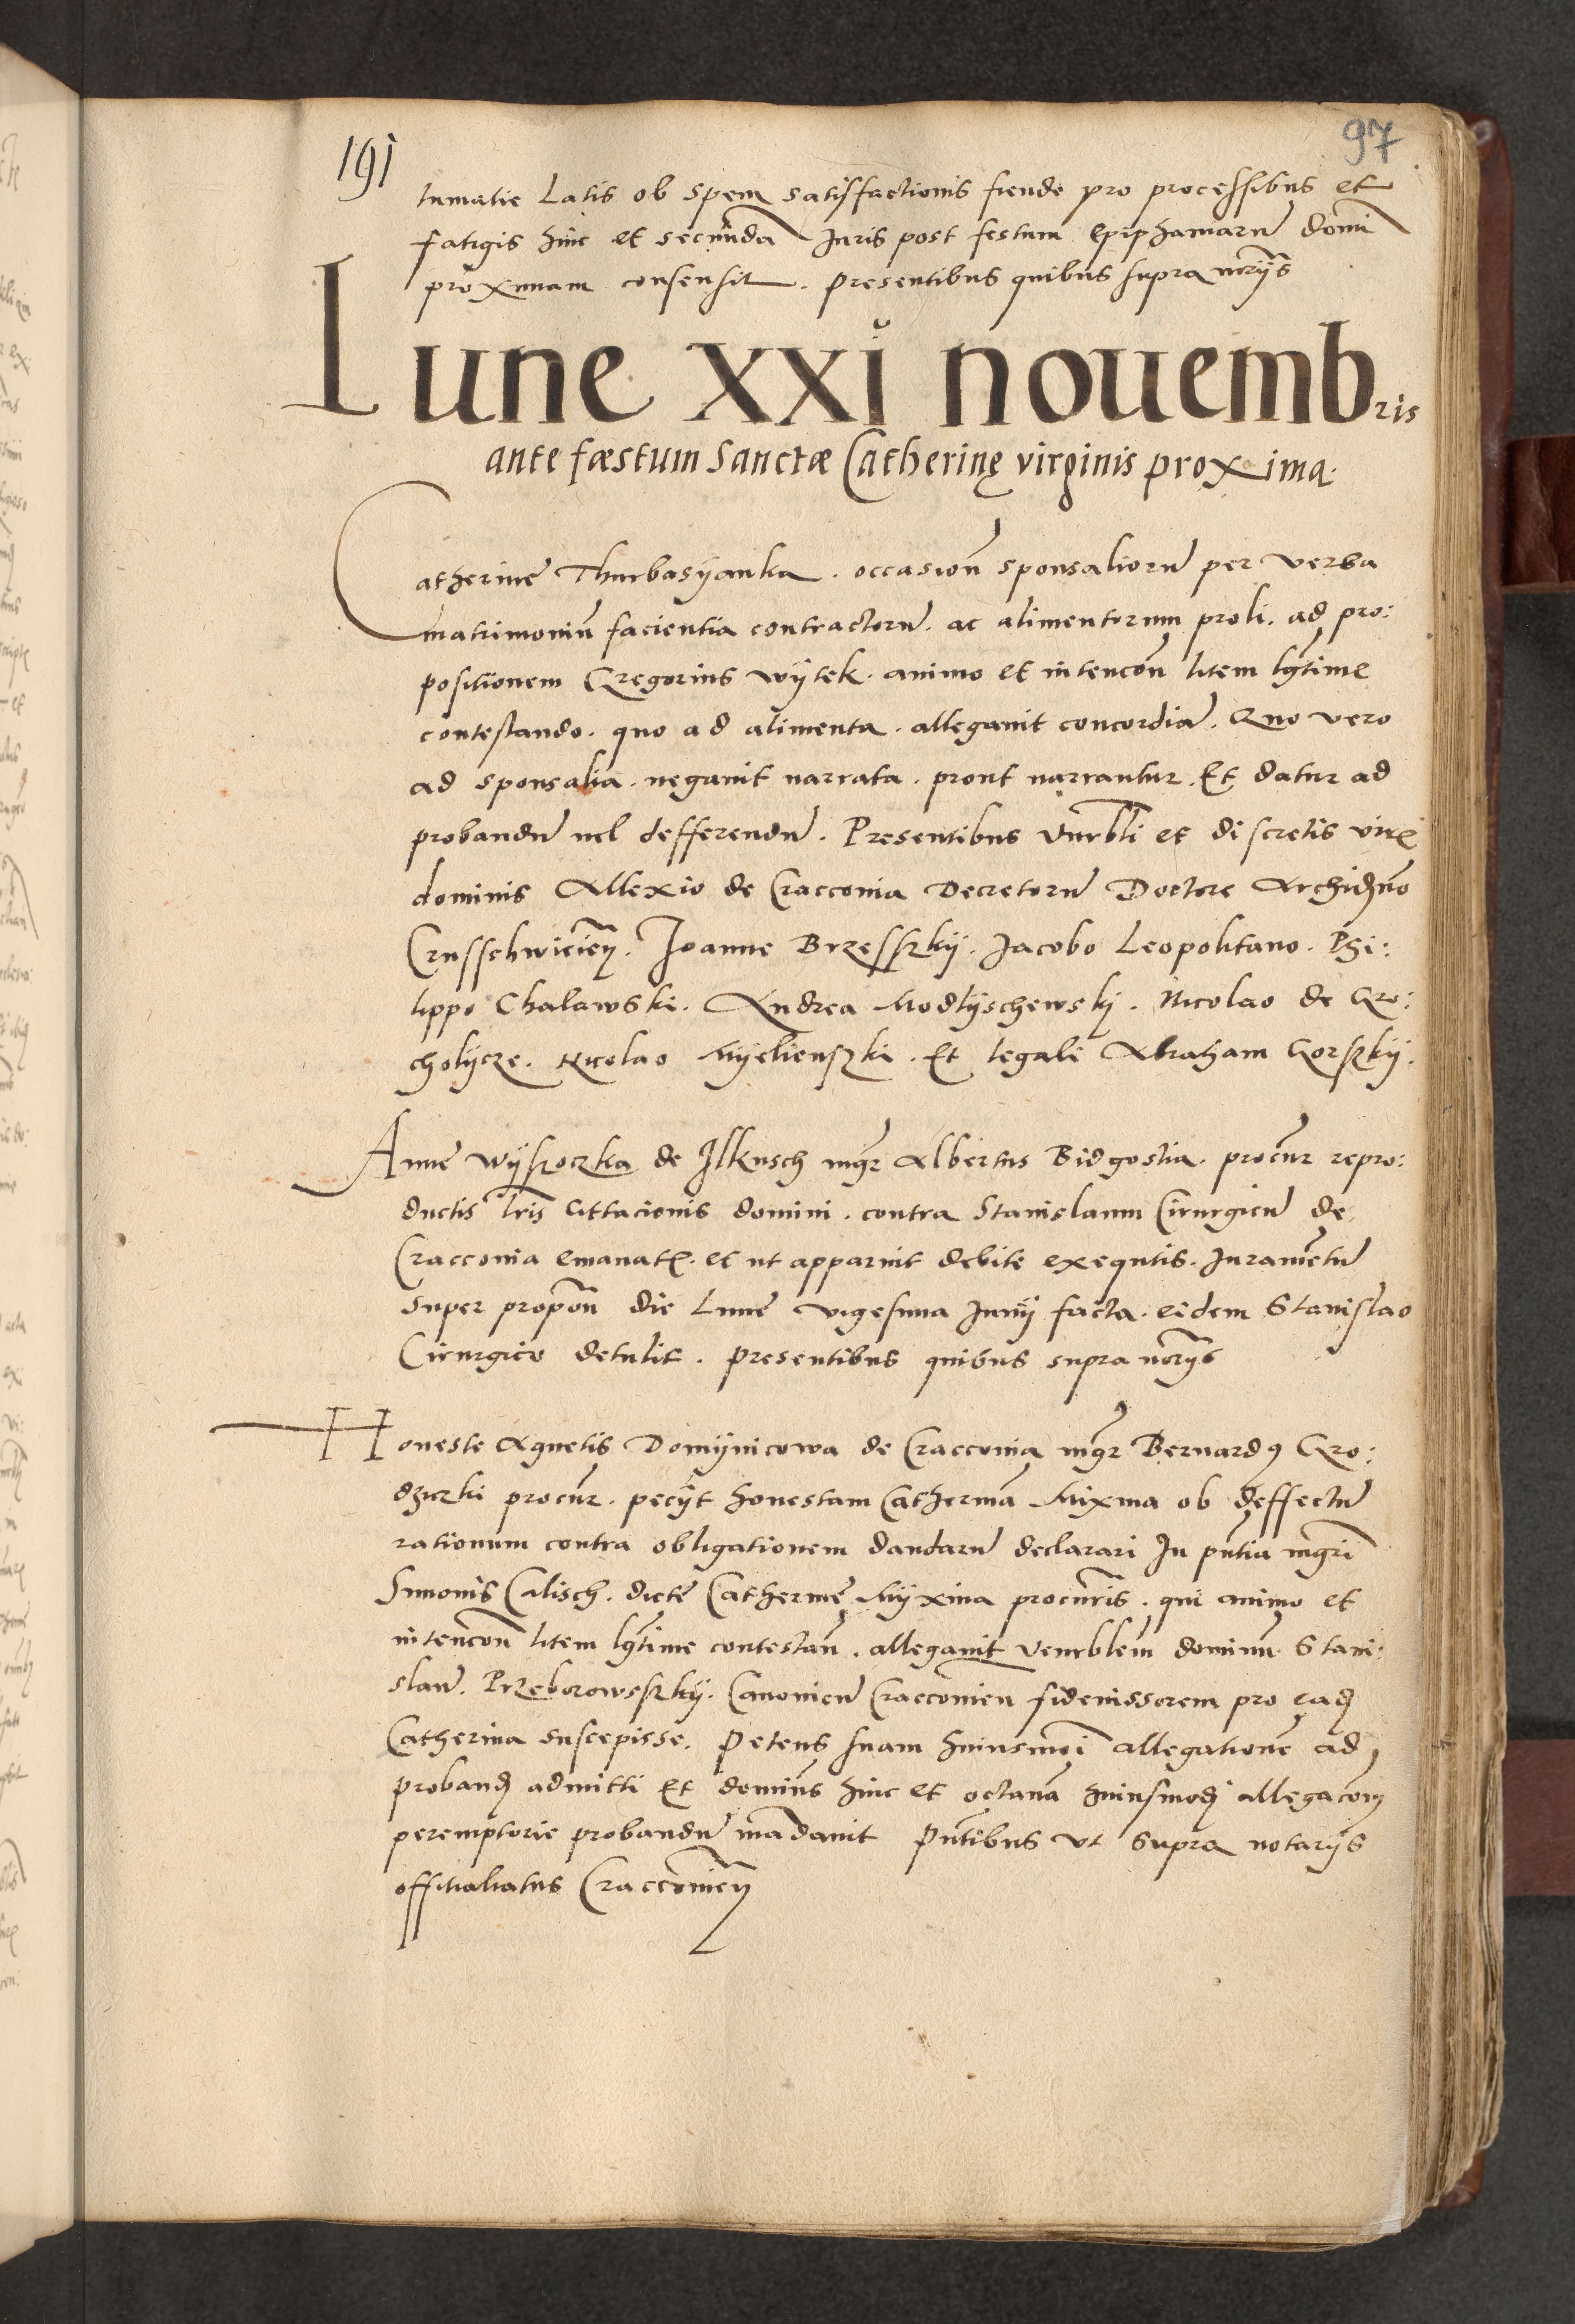 191
97
tumatie Latis ob spem satisfactionis fiende pro processibus et
fatigis hinc et secunda Juris post festum Epiphaniarũ domi
proximam consensit. Presentibus quibus supra notrijs
Lune xxi nouembris
ante fæstum Sanctæ Catherinę virginis proxima.
Catherine Thurbasijanka. occasioñ sponsaliorũ per verba
matrimoniũ facientia contractorũ. ac alimentorum proli. ad pro:
positionem Gregorius wijtek. animo et intencõn litem lgtime
contestando. quo ad alimenta. allegauit concordiã. Quo vero
ad sponsalia. negauit narrata. prout narrantur. Et datur ad
probandũ uel defferendũ. Presentibus Vnrbli et discretis viris
dominis Allexio de Cracconia Decretorũ Doctore Archidno
Crusschwicien̄. Joanne Brzesszkij. Jacobo Leopolitano. Phi:
lippo Chalawski. Andrea Modlijschewskj. Nicolao de Gro:
cholijcze. Nicolao Mijelienszki. Et legali Abraham Gorszkij.
Anne wijszoczka de Ilkusch mgr Albertus Bidgostia. procur̃ repro:
ductis lris Cittacionis domini. contra Stanislaum Cirurgicũ de
Cracconia emanatis. et ut apparuit debite exequtis. Juramẽtũ
super propõn die Lune vigesima Junij facta. eidem Stanislao
Cirurgico detulit. Presentibus quibus supra notrijs
Honeste Agnetis Domijnicowa de Cracconia mgr Bernardus Gro:
dziczki procur̃. pecijt honestam Catherinã Mixina ob deffectũ
rationum contra obligationem dandarũ declarari In pñtia mgri
Simonis Calisch. dicte Catherine Mijxina procuris. qui animo et
intencõn litem lgtime contestañ. allegauit Venrblem dominũ Stani:
slaũ. Przeborowszkij. Canonicũ Cracconieñ fideiussorem pro ead
Catherina suscepisse. Petens suam huiusmoi allegationẽ ad
proband admitti Et dominus hinc et octauã huiusmodi allegacõn
peremptorie probandũ mãdauit Pñtibus vt supra notarijs
offitialiatus Cracconieñ